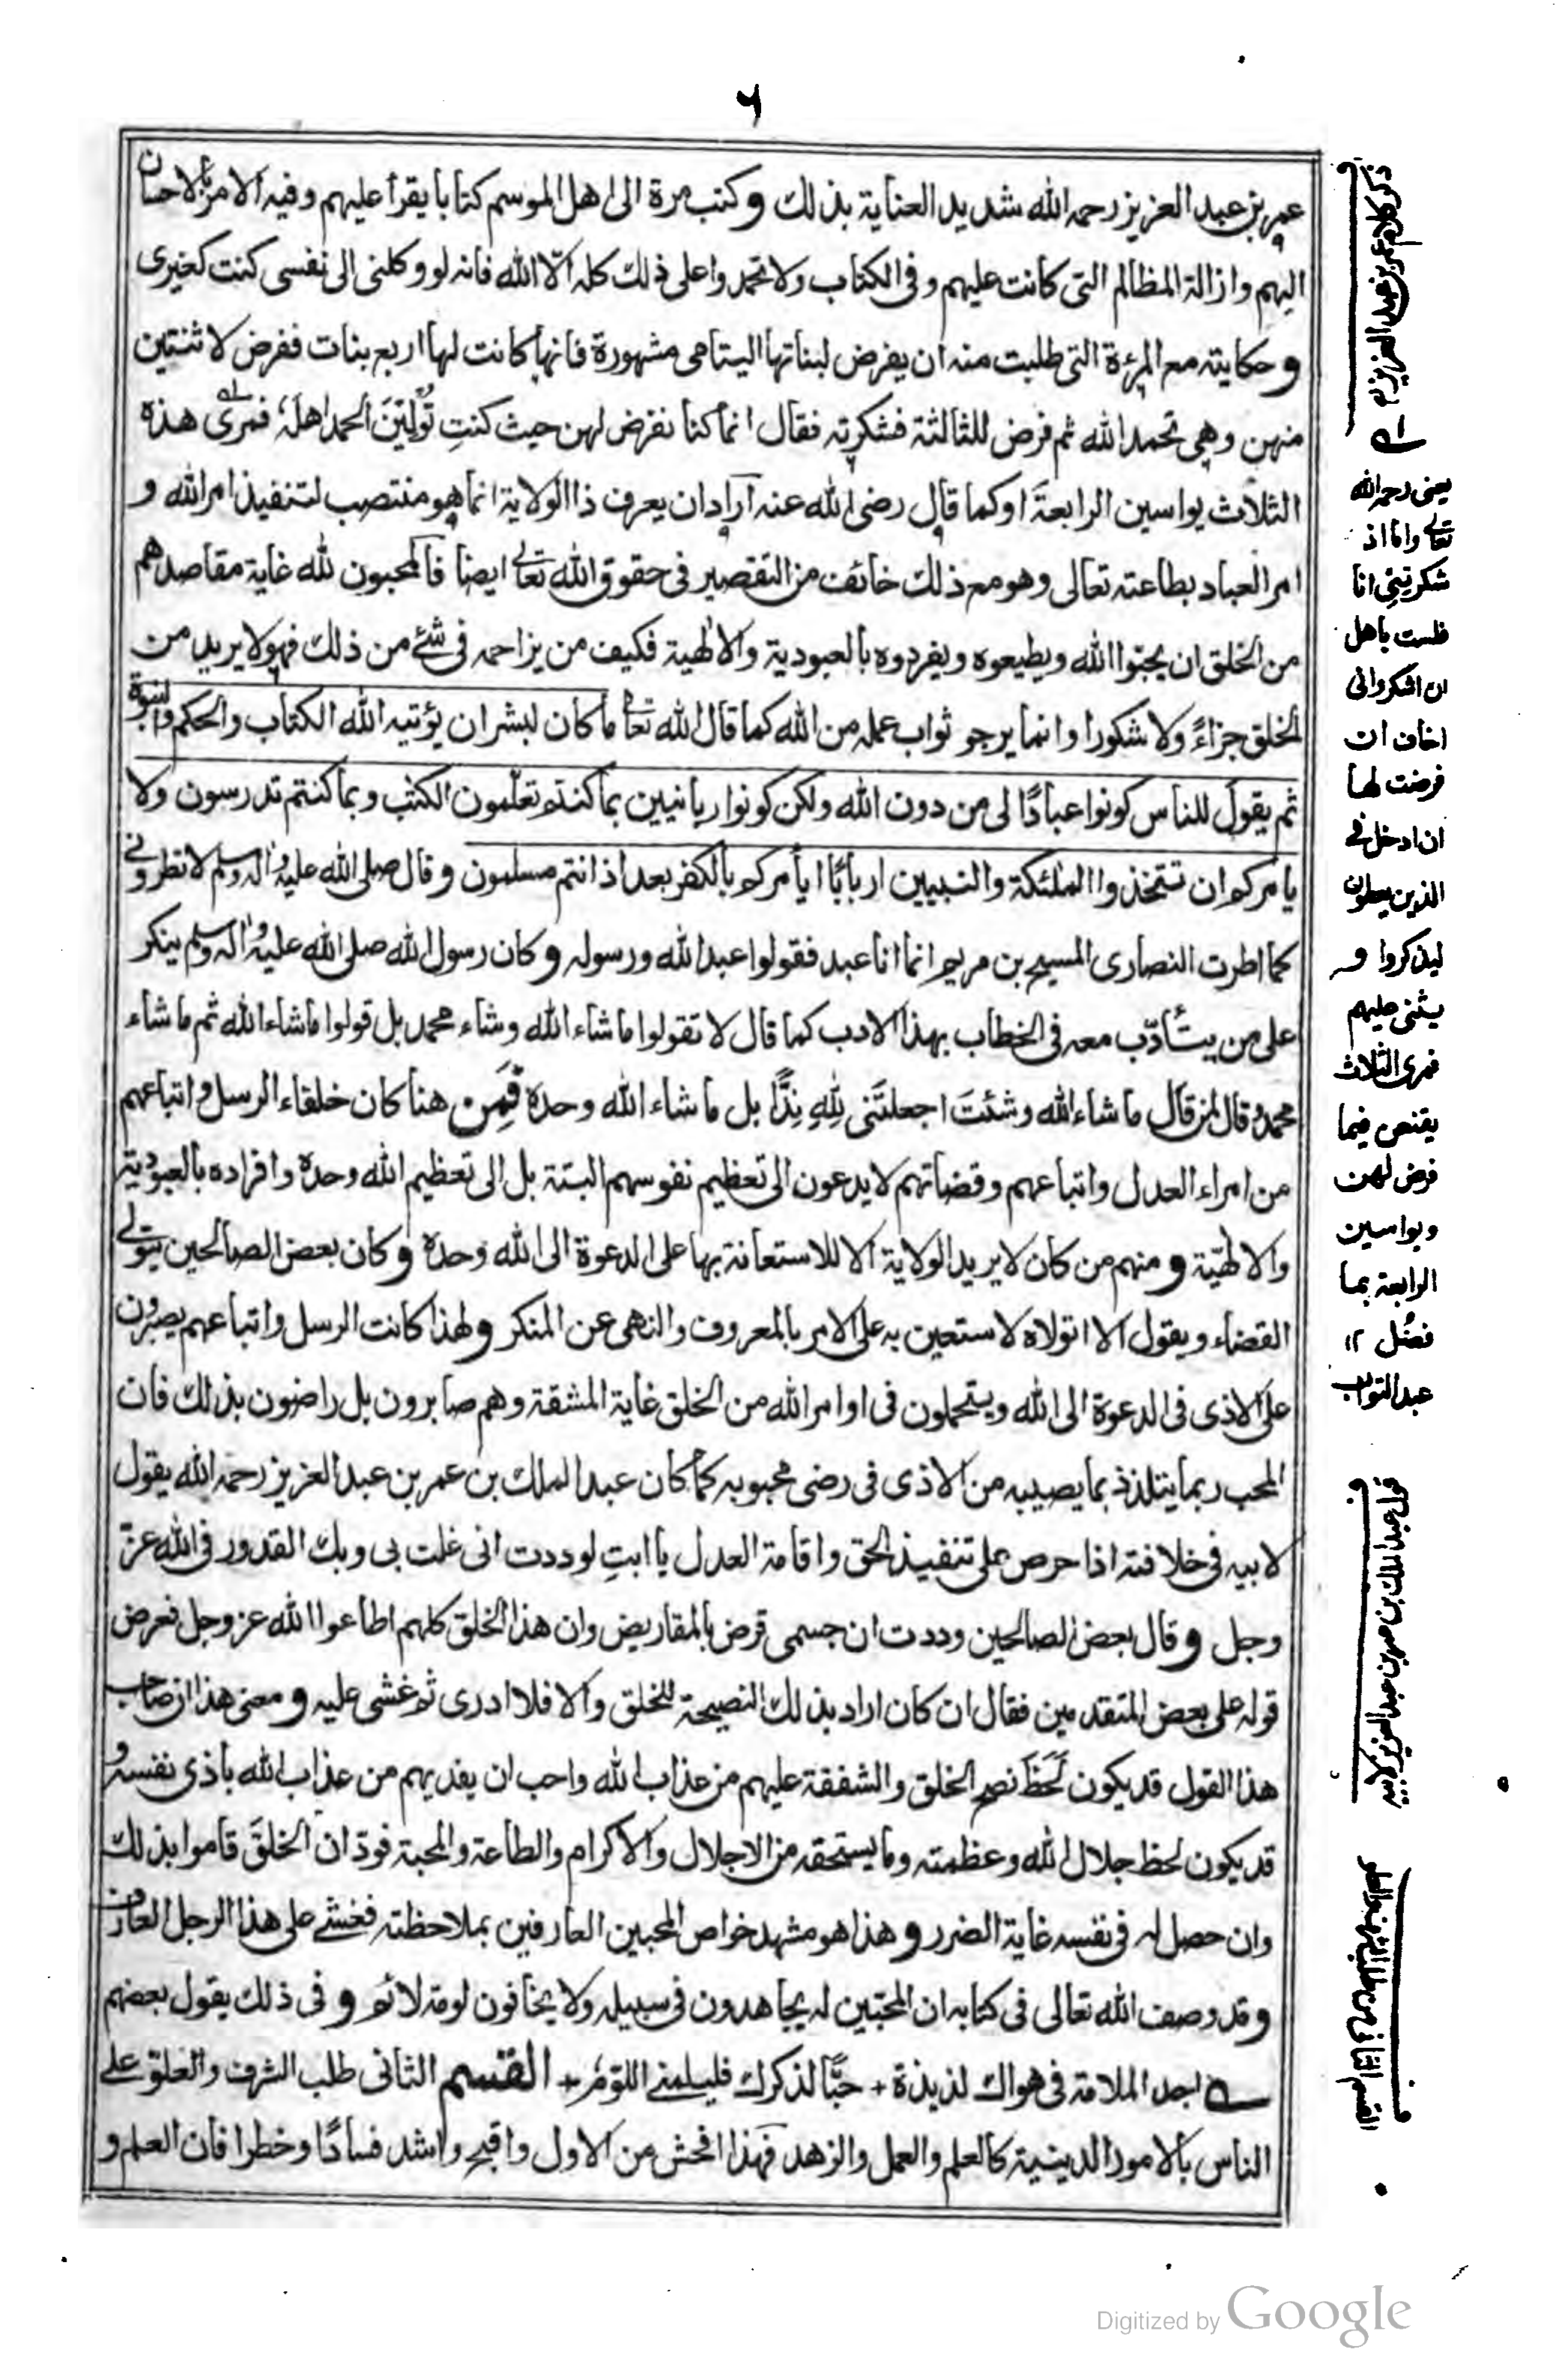 ٦
عمر بن عبد العزيز رحمه الله شديد العناية بذلك وكتب مرة الى اهل الموسم كتابا يقرأ عليهم وفيه الامر بالاحسان
اليهم وازالة المظالم التى كانت عليهم وفى الكتاب ولا تحمدوا على ذلك كله الّا الله فانه لو وكلنى الى نفسى كنت كغيرى
وحكايته مع المرءة التى طلبت منه ان يفرض لبناتها اليتامى مشهورة فانها كانت لها اربع بنات ففرض لاثنتين
منهن وهى تحمد الله ثم فرض للثالثة فشكرته فقال انما كنا نفرض لهن حيث كنتِ تُولِّيَنَ الحمد اهلَهٗ فمرى هذه
الثلاث يواسين الرابعةَ اوكما قال رضى الله عنه اراد ان يعرف ذا الولاية انما هو منتصب لتنفيذ امر الله و
امر العباد بطاعته تعالى وهو مع ذلك خائف من التقصير فى حقوق الله تعالى ايضا فالمحبون لله غاية مقاصدهم
من الخلق ان يحبوا الله ويطيعوه ويفردوه بالعبودية والالٰهية فكيف من يزاحمه فى شئ من ذلك فهو لا يريد من
الخلق جزاءً ولا شكورا وانما يرجو ثواب عمله من الله كما قال الله تعالى ما كان لبشر ان يؤتيه الله الكتاب والحكم والنبوة
ثم يقولَ للناس كونوا عبادًا لى من دون الله ولكن كونوا ربانيين بما كنتم تعلّمون الكتٰب وبما كنتم تدرسون ولا
يامركم ان تتخذوا الملٰئكة والنبيين اربابًا ايأمركم بالكفر بعد اذ انتم مسلمون وقال صلى الله عليه واٰله وسلم لا تطرونى
كما اطرت النصارى المسيح بن مريم انما انا عبد فقولوا عبد الله ورسوله وكان رسول الله صلى الله عليه واٰله وسلم ينكر
على من يتأدّب معه فى الخطاب بهذا الادب كما قال لا تقولوا ما شاء الله وشاء محمد بل قولوا ما شاء الله ثم ما شاء
محمد وقال لمن قال ما شاء الله وشئتَ اجعلتَنى لِلّٰهِ نِدًّا بل ما شاء الله وحده فمِن هنا كان خلفاء الرسل واتباعهم
من امراء العدل واتباعهم وقضاتهم لا يدعون الى تعظيم نفوسهم البتة بل الى تعظيم الله وحده وافراده بالعبودية
والالٰهيّة ومنهم من كان لا يريد الولاية الا للاستعانة بها على الدعوة الى الله وحده وكان بعض الصالحين يتولى
القضاء ويقول الا اتولاه لاستعين به على الامر بالمعروف والنهى عن المنكر ولهذا كانت الرسل واتباعهم يصبرون
على الاذى فى الدعوة الى الله ويتحملون فى اوامر الله من الخلق غاية المشقة وهم صابرون بل راضون بذلك فان
المحب ربما يتلذذ بما يصيبه من الاذى فى رضى محبوبه كما كان عبد الملك بن عمر بن عبد العزيز رحمه الله يقول
لابيه فى خلافته اذا حرص على تنفيذ الحق واقامة العدل يا ابتِ لوددت انى غلت بى وبك القدور فى الله عزّ
وجل وقال بعض الصالحين وددت ان جسمى قرض بالمقاريض وان هذا الخلق كلهم اطاعوا الله عز وجل فعرض
قوله على بعض المتقدمين فقال ان كان اراد بذلك النصيحة للخلق والا فلا ادرى ثم غشى عليه ومعنى هذا ان صاحب
هذا القول قد يكون لَحَظَ نصح الخلق والشفقة عليهم من عذاب الله واحب ان يفديهم من عذاب الله باذى نفسه و
قد يكون لحظ جلال الله وعظمته وما يستحقه من الاجلال والاكرام والطاعة والمحبة فودّ ان الخلقَ قاموا بذلك
وان حصل له فى نفسه غاية الضرر وهذا هو مشهد خواص المحبين العارفين بملاحظته فغشى على هذا الرجل العارف
وقد وصف الله تعالى فى كتابه ان المحبّين له يجاهدون فى سبيله ولا يخافون لومة لائم وفى ذلك يقول بعضهم
اجد الملامة فى هواك لذيذة + حبًّا لذكرك فليلمنى اللوّمُ + القسم الثانى طلب الشرف والعلو على
الناس بالامور الدينية كالعلم والعمل والزهد فهذا افحش من الاول واقبح واشد فسادًا وخطرا فان العلم و
ذكر كلام عمر بن عبد العزيز
يعنى رحمه الله
تعالى واما اذ
شكرتينى انا
فلست باهل
ان اشكر وانى
اخاف ان
فرضت لها
ان ادخل فى
الذين يعطون
ليذكروا و
يثنى عليهم
فمرى الثلاث
يقتص فيما
فرض لهن
ويواسين
الرابعة بما
فضل ١٢
عبد التواب
قول عبد الملك بن عمر بن عبد العزيز لابيه
القسم الثانى من طلب الشرف والعلو
Digitized by Google